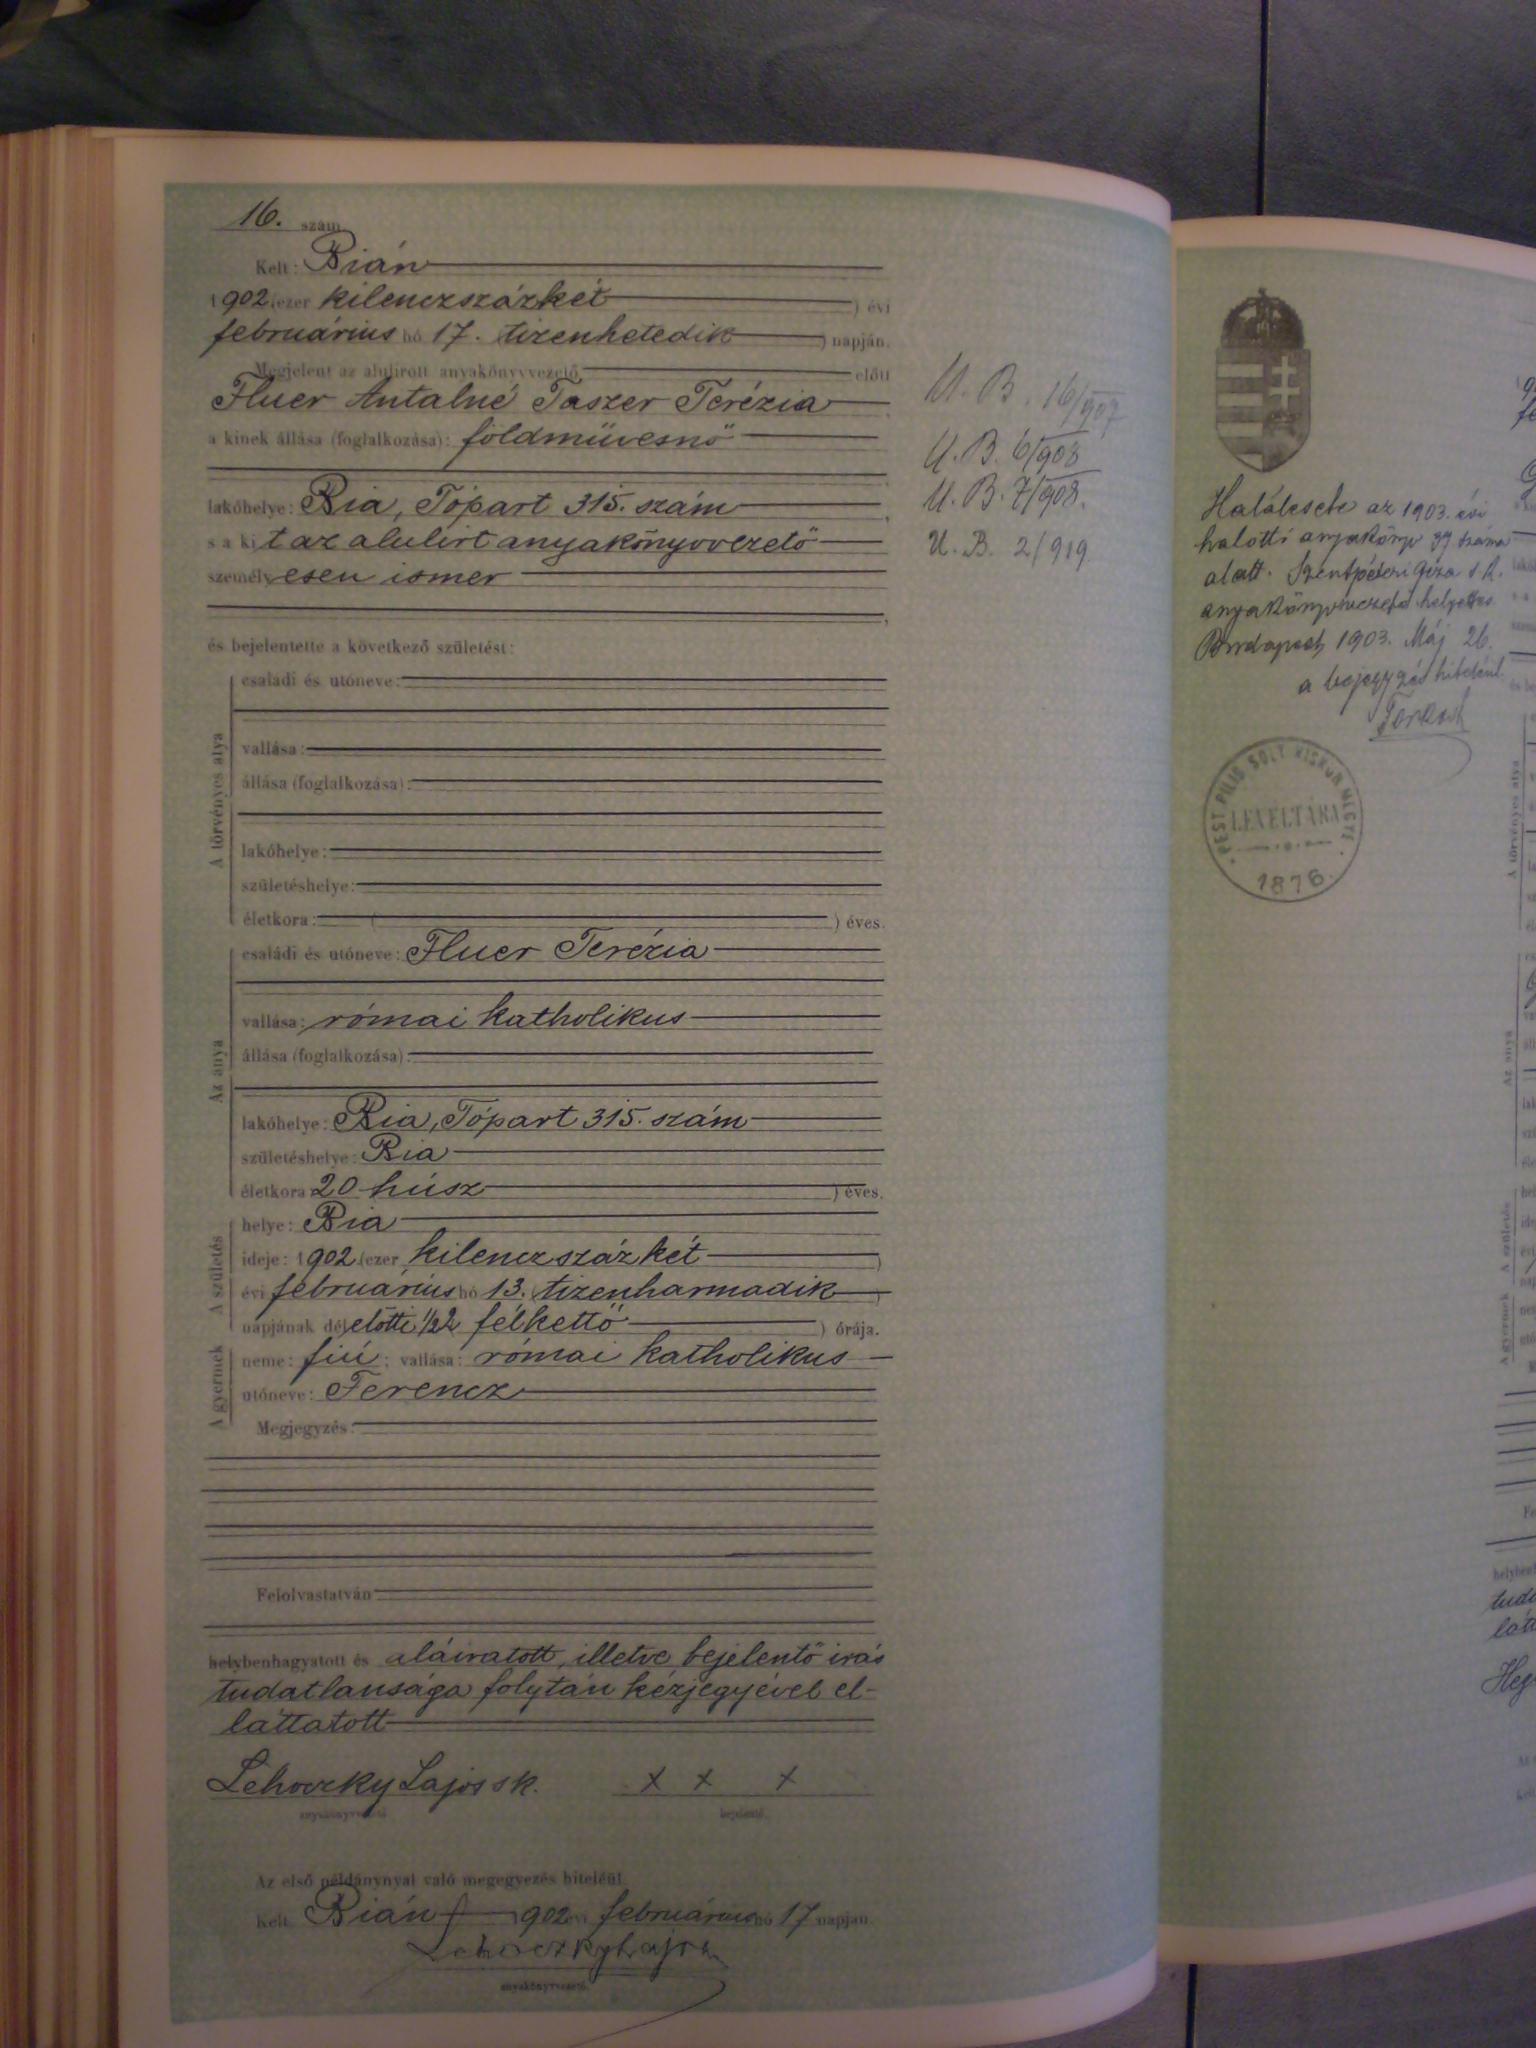 16. szám
Kelt: Bián
1902 (ezer kilenczszázkét ) évi
februárius hó 17. tizenhetedik ) napján.
Megjelent az alulirott anyakönyvvezető előtt
Fluer Antalné Taszer Terézia
a kinek állása (foglalkozása): földmüvesnő
lakóhelye: Bia, Tópart 315. szám
s a kit az alulirt anyakönyvvezető
személyesen ismer
és bejelentette a következő születést:
A törvényes atya
családi és utóneve:
vallása:
állása (foglalkozása):
lakóhelye:
születéshelye:
életkora: ( ) éves.
Az anya
családi és utóneve: Fluer Terézia
vallása: római katholikus
állása (foglalkozása):
lakóhelye: Bia, Tópart 315. szám
születéshelye: Bia
életkora 20 húsz ) éves.
A születés
helye: Bia
ideje: 1902 (ezer kilenczszázkét )
évi februárius hó 13. (tizenharmadik )
napjának délelőtti 1/2 2 félkettő ) órája.
A gyermek
neme: fiú; vallása: római katholikus
utóneve: Ferencz
Megjegyzés:
Felolvastatván
helybenhagyatott és aláiratott, illetve bejelentő irás
tudatlansága folytán kézjegyével el-
láttatott
Lehoczky Lajos sk. x x x
anyakönyvvezető bejelentő.
Az első példánynyal való megegyezés hiteléül.
Kelt Bián 1902 évi februárius hó 17 napján.
Lehoczky Lajos
anyakönyvvezető.
U. B. 16/907
U. B. 6/908
U. B. 7/908.
U. B. 2/919
Halálesete az 1903. évi
halotti anyakönyv 37 száma
alatt. Szentpéteri Géza s. k.
anyakönyvvezető helyettes
Budapest 1903. Máj 26.
a bejegyzés hiteléül.
PEST PILIS SOLT KISKUN MEGYE
LEVÉLTÁRA
1876.